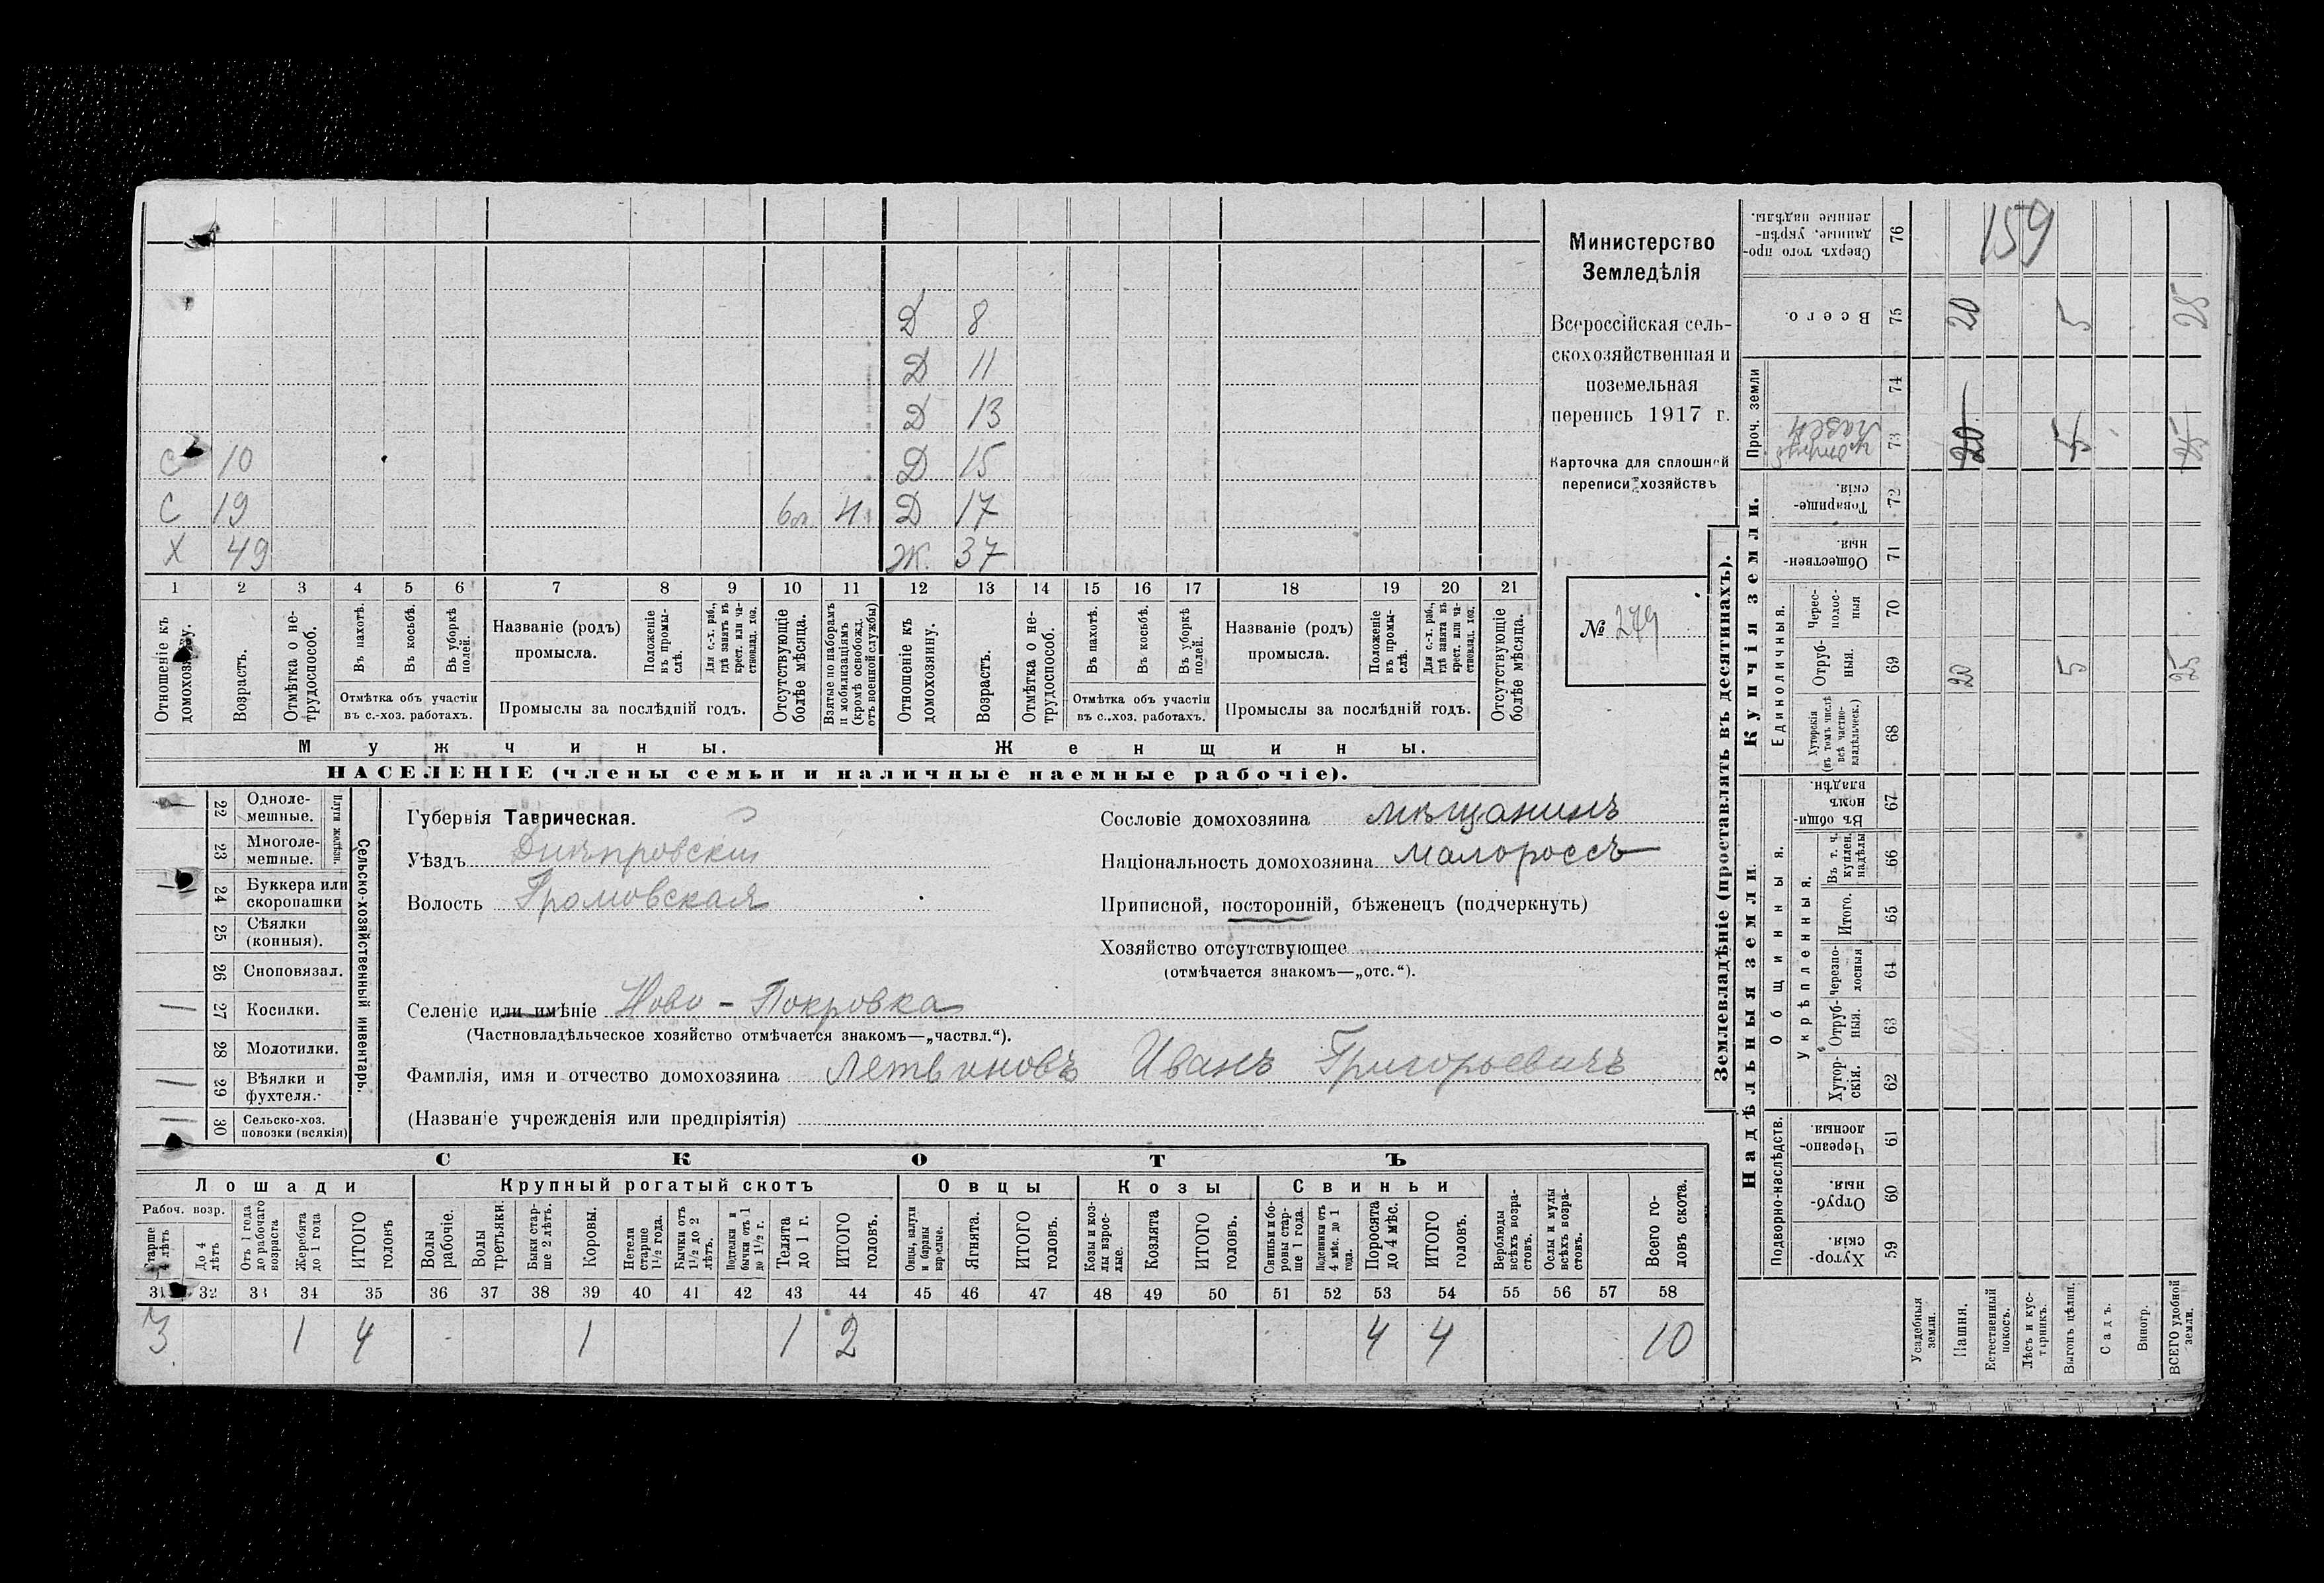 Министерство
Земледѣлія
Всероссійская сель-
скохозяйственная и
поземельная
перепись 1917 г.
Карточка для сплошной
переписи хозяйствъ
№ 279
Д 8
Д 11
Д 13
С 10 Д 15
С 19 Д 17
Х 49 Ж. 37
1 2 3 4 5 6 7 8 9 10 11 12 13 14 15 16 17 18 19 20 21
Отношеніе къ домохозяину.
Возрастъ.
Отмѣтка о не-
трудоспособ.
Въ пахотѣ.
Въ косьбѣ.
Въ уборкѣ
полей.
Отмѣтка объ участіи
въ с.-хоз. работахъ.
Названіе (родъ)
промысла.
Положеніе
въ промы-
слѣ.
Для с.-х. раб.,
гдѣ занятъ въ
крест. или ча-
стновлад. хоз.
Промыслы за послѣдній годъ.
Отсутствующіе
болѣе мѣсяца.
Взятые по наборамъ
и мобилизаціямъ
(кромѣ освобожд.
отъ военной службы)
Отношеніе къ
домохозяину.
Возрастъ.
Отмѣтка о не-
трудоспособ.
Въ пахотѣ.
Въ косьбѣ.
Въ уборкѣ
полей.
Отмѣтка объ участіи
въ с.-хоз. работахъ.
Названіе (родъ)
промысла.
Положеніе
въ промы-
слѣ.
Для с.-х. раб.,
гдѣ занята въ
крест. или ча-
стновлад. хоз.
Промыслы за послѣдній годъ.
Отсутствующіе
болѣе мѣсяца.
Мужчины.
Женщины.
НАСЕЛЕНІЕ (члены семьи и наличные наемные рабочіе).
22 Одноле-
мешные.
23 Многоле-
мешные.
Плуги желѣзн.
24 Буккера или
скоропашки
25 Сѣялки
(конныя).
26 Сноповязал.
27 Косилки.
28 Молотилки.
29 Вѣялки и
фухтеля.
30 Сельско-хоз.
повозки (всякія)
Сельско-хозяйственный инвентарь.
Губернія Таврическая.
Уѣздъ Днѣпровскій
Волость Громовская
Селеніе или имѣніе Ново - Покровка
(Частновладѣльческое хозяйство отмѣчается знакомъ—„частвл.“).
Фамилія, имя и отчество домохозяина Летвиновъ Иванъ Григорьевичъ
(Названіе учрежденія или предпріятія)
Сословіе домохозяина мѣщанинъ
Національность домохозяина малороссъ
Приписной, посторонній, бѣженецъ (подчеркнуть)
Хозяйство отсутствующее
(отмѣчается знакомъ—„отс.“).
СКОТЪ
Лошади
Крупный рогатый скотъ
Овцы
Козы
Свиньи
Рабоч. возр.
Старше
4 лѣтъ
До 4
лѣтъ
Отъ 1 года
до рабочаго
возраста
Жеребята
до 1 года
ИТОГО
головъ
Волы
рабочіе.
Волы
третьяки.
Быки стар-
ше 2 лѣтъ.
Коровы.
Нетели
старше
1½ года.
Бычки отъ
1½ до 2
лѣтъ.
Подтелки и
бычки отъ 1
до 1½ г.
Телята
до 1 г.
ИТОГО
головъ.
Овцы, валухи
и бараны
взрослые.
Ягнята.
ИТОГО
головъ.
Козы и коз-
лы взрос-
лые.
Козлята
ИТОГО
головъ.
Свиньи и бо-
ровы стар-
ше 1 года.
Подсвинки отъ
4 мѣс. до 1
года.
Поросята
до 4 мѣс.
ИТОГО
головъ.
Верблюды
всѣхъ возра-
стовъ.
Ослы и мулы
всѣхъ возра-
стовъ.
Всего го-
ловъ скота.
31 32 33 34 35 36 37 38 39 40 41 42 43 44 45 46 47 48 49 50 51 52 53 54 55 56 57 58
3 1 4 1 1 2 4 4 10
Землевладѣніе (проставлять въ десятинахъ).
Надѣльныя земли.
Купчія земли.
Проч. земли
Подворно-наслѣдств.
Общинныя.
Укрѣпленныя.
Единоличныя.
Хутор-
скія. 59
Отруб-
ныя. 60
Черезпо-
лосныя 61
Хутор-
скія. 62
Отруб-
ныя. 63
Черезпо-
лосныя 64
Итого. 65
Въ т. ч.
куплен.
надѣлы 66
Въ общин-
номъ
владѣн. 67
Хуторскія
(въ томъ числѣ
всѣ частно-
владѣльческ.) 68
Отруб-
ныя. 69
Черес-
полос-
ныя 70
Обществен-
ныя. 71
Товарище-
скія. 72
73
74
Всего. 75
Сверхъ того про-
данные, укрѣп-
ленные надѣлы. 76
159
20 5 25
20 5 25
20 5 25
Усадебныя
земли.
Пашня.
Естественный
покосъ.
Лѣсъ и кус-
тарникъ.
Выгонъ цѣлин.
Садъ.
Виногр.
ВСЕГО удобной
земли.